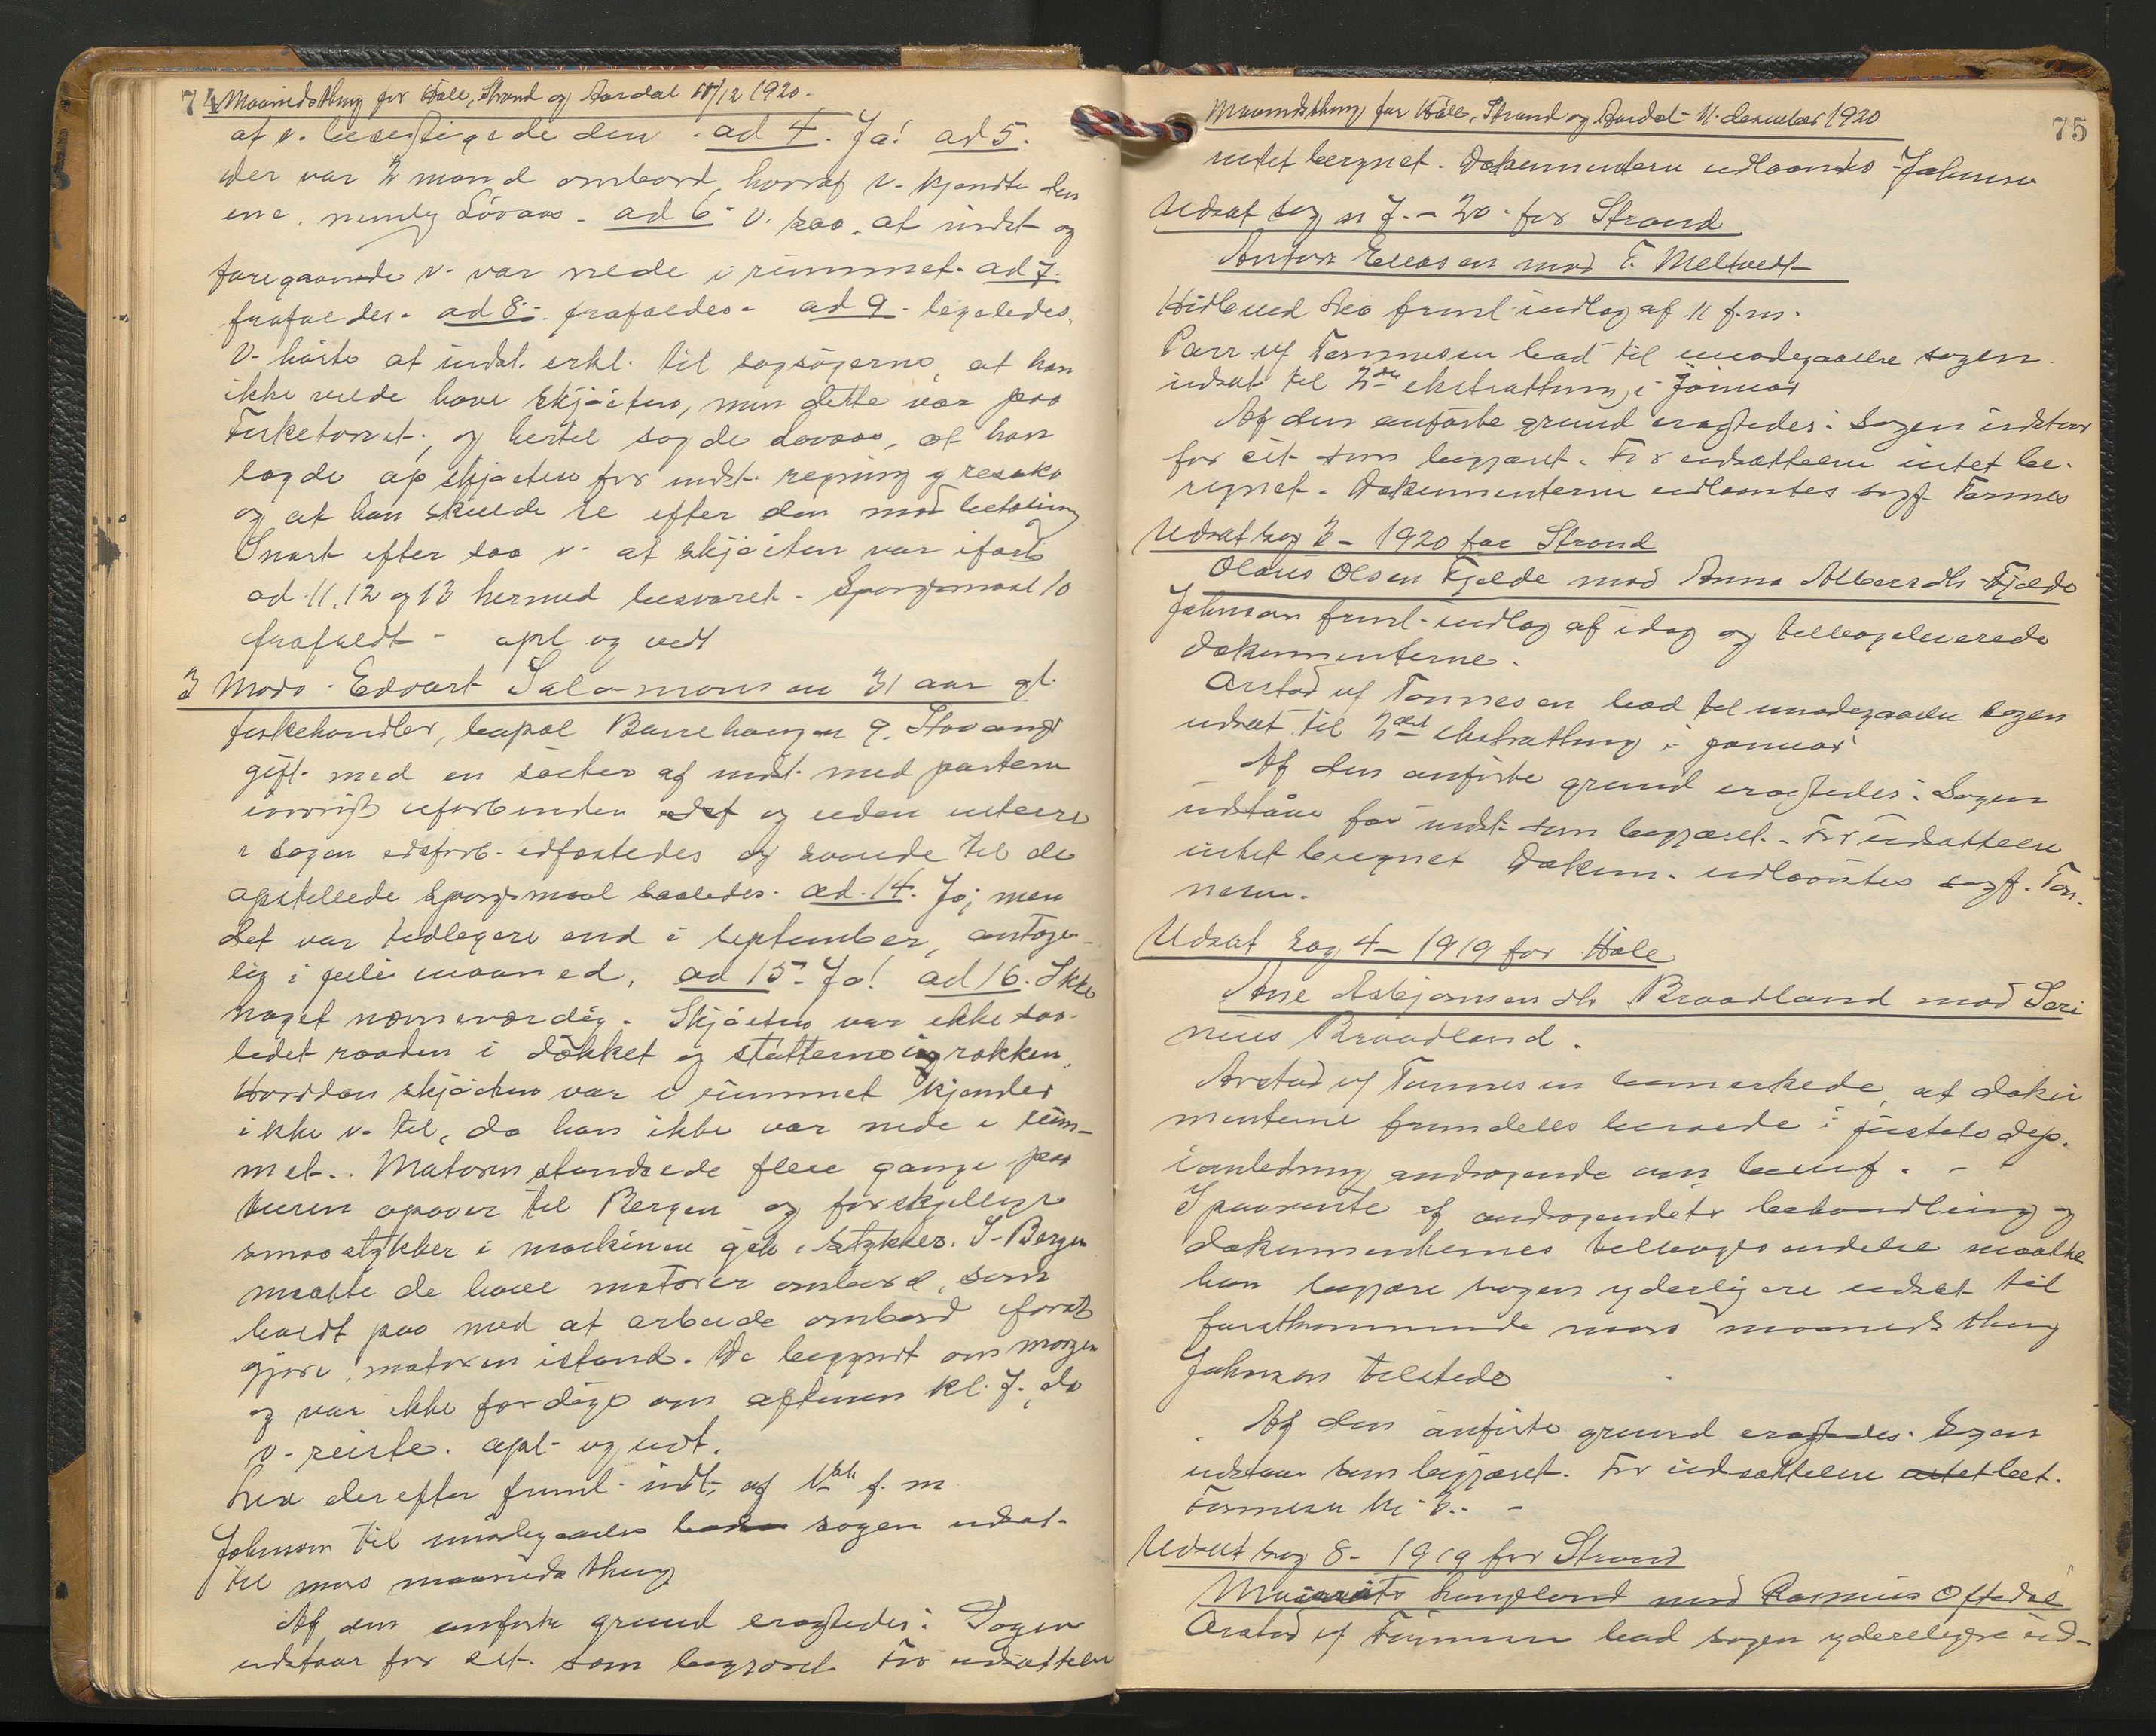 74 Maanedsthing for Høle, Strand og Aardal 11/12 1920.
at v. besigtigede den. ad 4. Ja! ad 5.
der var 2 mand ombord, hvoraf v. kjendte den
ene, nemlig Lövaas. ad 6. v. saa, at indst. og
foregaaende v. var nede i rummet. ad 7.
frafaldes. ad 8: frafaldes. ad 9. ligeledes.
V. hørte at indst. erkl. til sagsøgerne, at han
ikke vilde have skjøiten, men dette var paa
Fisketorvet, og hertil sagde Lovaas, at han
lagde op skjøiten for indst. regning og resiko
og at han skulde se efter den mod betaling
Snart efter saa v. at skjøiten var
ad 11, 12 og 13 hermed besvaret. Spørgsmaal 10
frafaldt. opl. og vedt.
3 Edvart Salomonsen 31 aar gl.
fiskehandler, bopæl Stavanger
gift med en søster af indst. med parterne
iøvrigt uforbunden og uden interesse
i sagen edsforb. edfæstedes og svarede til de
opstillede spørgsmaal saaledes. ad. 14. Ja; men
det var tidligere end i september, antage-
lig i juli maaned. ad 15. Ja! ad 16. Ikke
noget nævneværdig. Skjøiten var ikke saa
lidet raaden i dækket og støtterne og rækken.
Hvordan skjøiten var i rummet kjender
ikke v. til, da han ikke var nede i rum-
met. Motoren standsede flere gange paa
turen opover til Bergen og forskjellige
smaastykker i maskinen gik i stykker. I Bergen
maatte de have ombord, som
holdt paa med at arbeide ombord forat
gjøre motoren istand. De begyndt om morgen
og var ikke færdige om aftenen kl. 7, da
v. reiste. opl. og vedt.
derefter freml. indl. af f. m.
Johnson til imødegaaelse sagen udsat
til mars maanedsthing
Af den anførte grund eragtedes: Sagen
udstaar for sit. som begjæret. For udsættelsen
Maanedsthing for Høle, Strand og Aardal 11. december 1920 75
intet beregnet. Dokumenterne udlaantes Johnson
Udsat sag n 7. - 20. for Strand
Anton Eliasen mod T. Meltvedt
freml. indlæg af 11 f.m.
Tønnesen bad til imødegaaelse sagen
udsat til 2den ekstrathing i januar
Af den anførte grund eragtedes: Sagen udstaar
for sit. som begjæret. For udsættelsen intet be-
regnet. Dokumenterne udlaantes sagf. Tønnes
Udsat sag 2 - 1920 for Strand
Olaus Olsen Fjelde mod Anna Fjelde
Johnson freml. indlæg af idag og tilbageleverede
dokumenterne.
Arstad vf Tønnesen bad til imødegaaelse sagen
udsat til 2det ekstrathing i januar
Af den anførte grund eragtedes: Sagen
udstaar for indst. som begjæret. For udsættelsen
intet beregnet Dokum. udlaantes sagf. Tøn-
nesen.
Udsat sag 4 - 1919 for Høle
Ane Asbjørnsendtr Braadland mod Seri
nius Braadland.
Arstad vf Tønnesen bemærkede, at doku
menterne fremdeles beroede i justitsdep.
i anledning andragende om benef. -
I paavente af andragendets behandling og
dokumenternes tilbagesendelse maatte
han begjære sagen yderligere udsat til
førstkommende mars maanedsthing
Johnson tilstede
Af den anførte grund eragtedes. Sagen
udstaar som begjæret. For udsættelsen
Tønnesen
Udsat sag 8 - 1919 for Strand
mod Rasmus Oftedal
Arstad vf Tønnesen bad sagen yderligere ud-